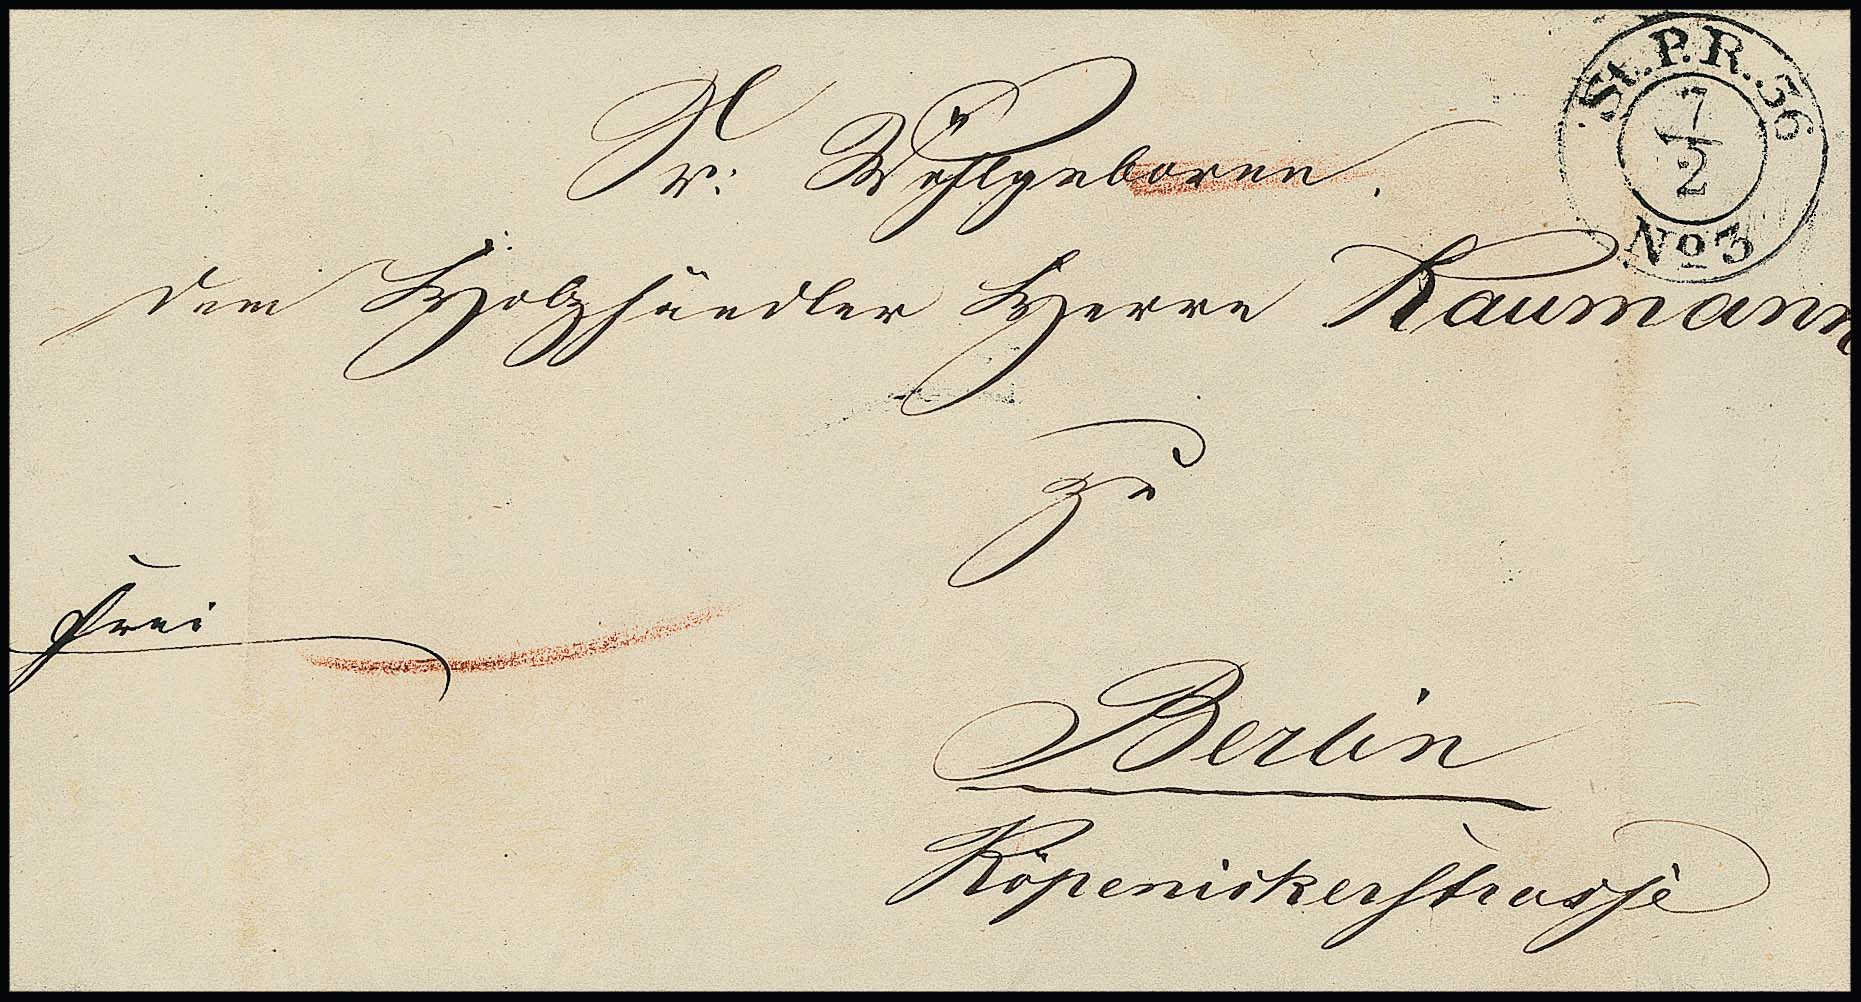 St.P.R.36
7/2
No3
Sr: Wohlgeboren.
dem Holzhändler Herrn Kaumann
zu
frei
Berlin
Köpenickerstrasse